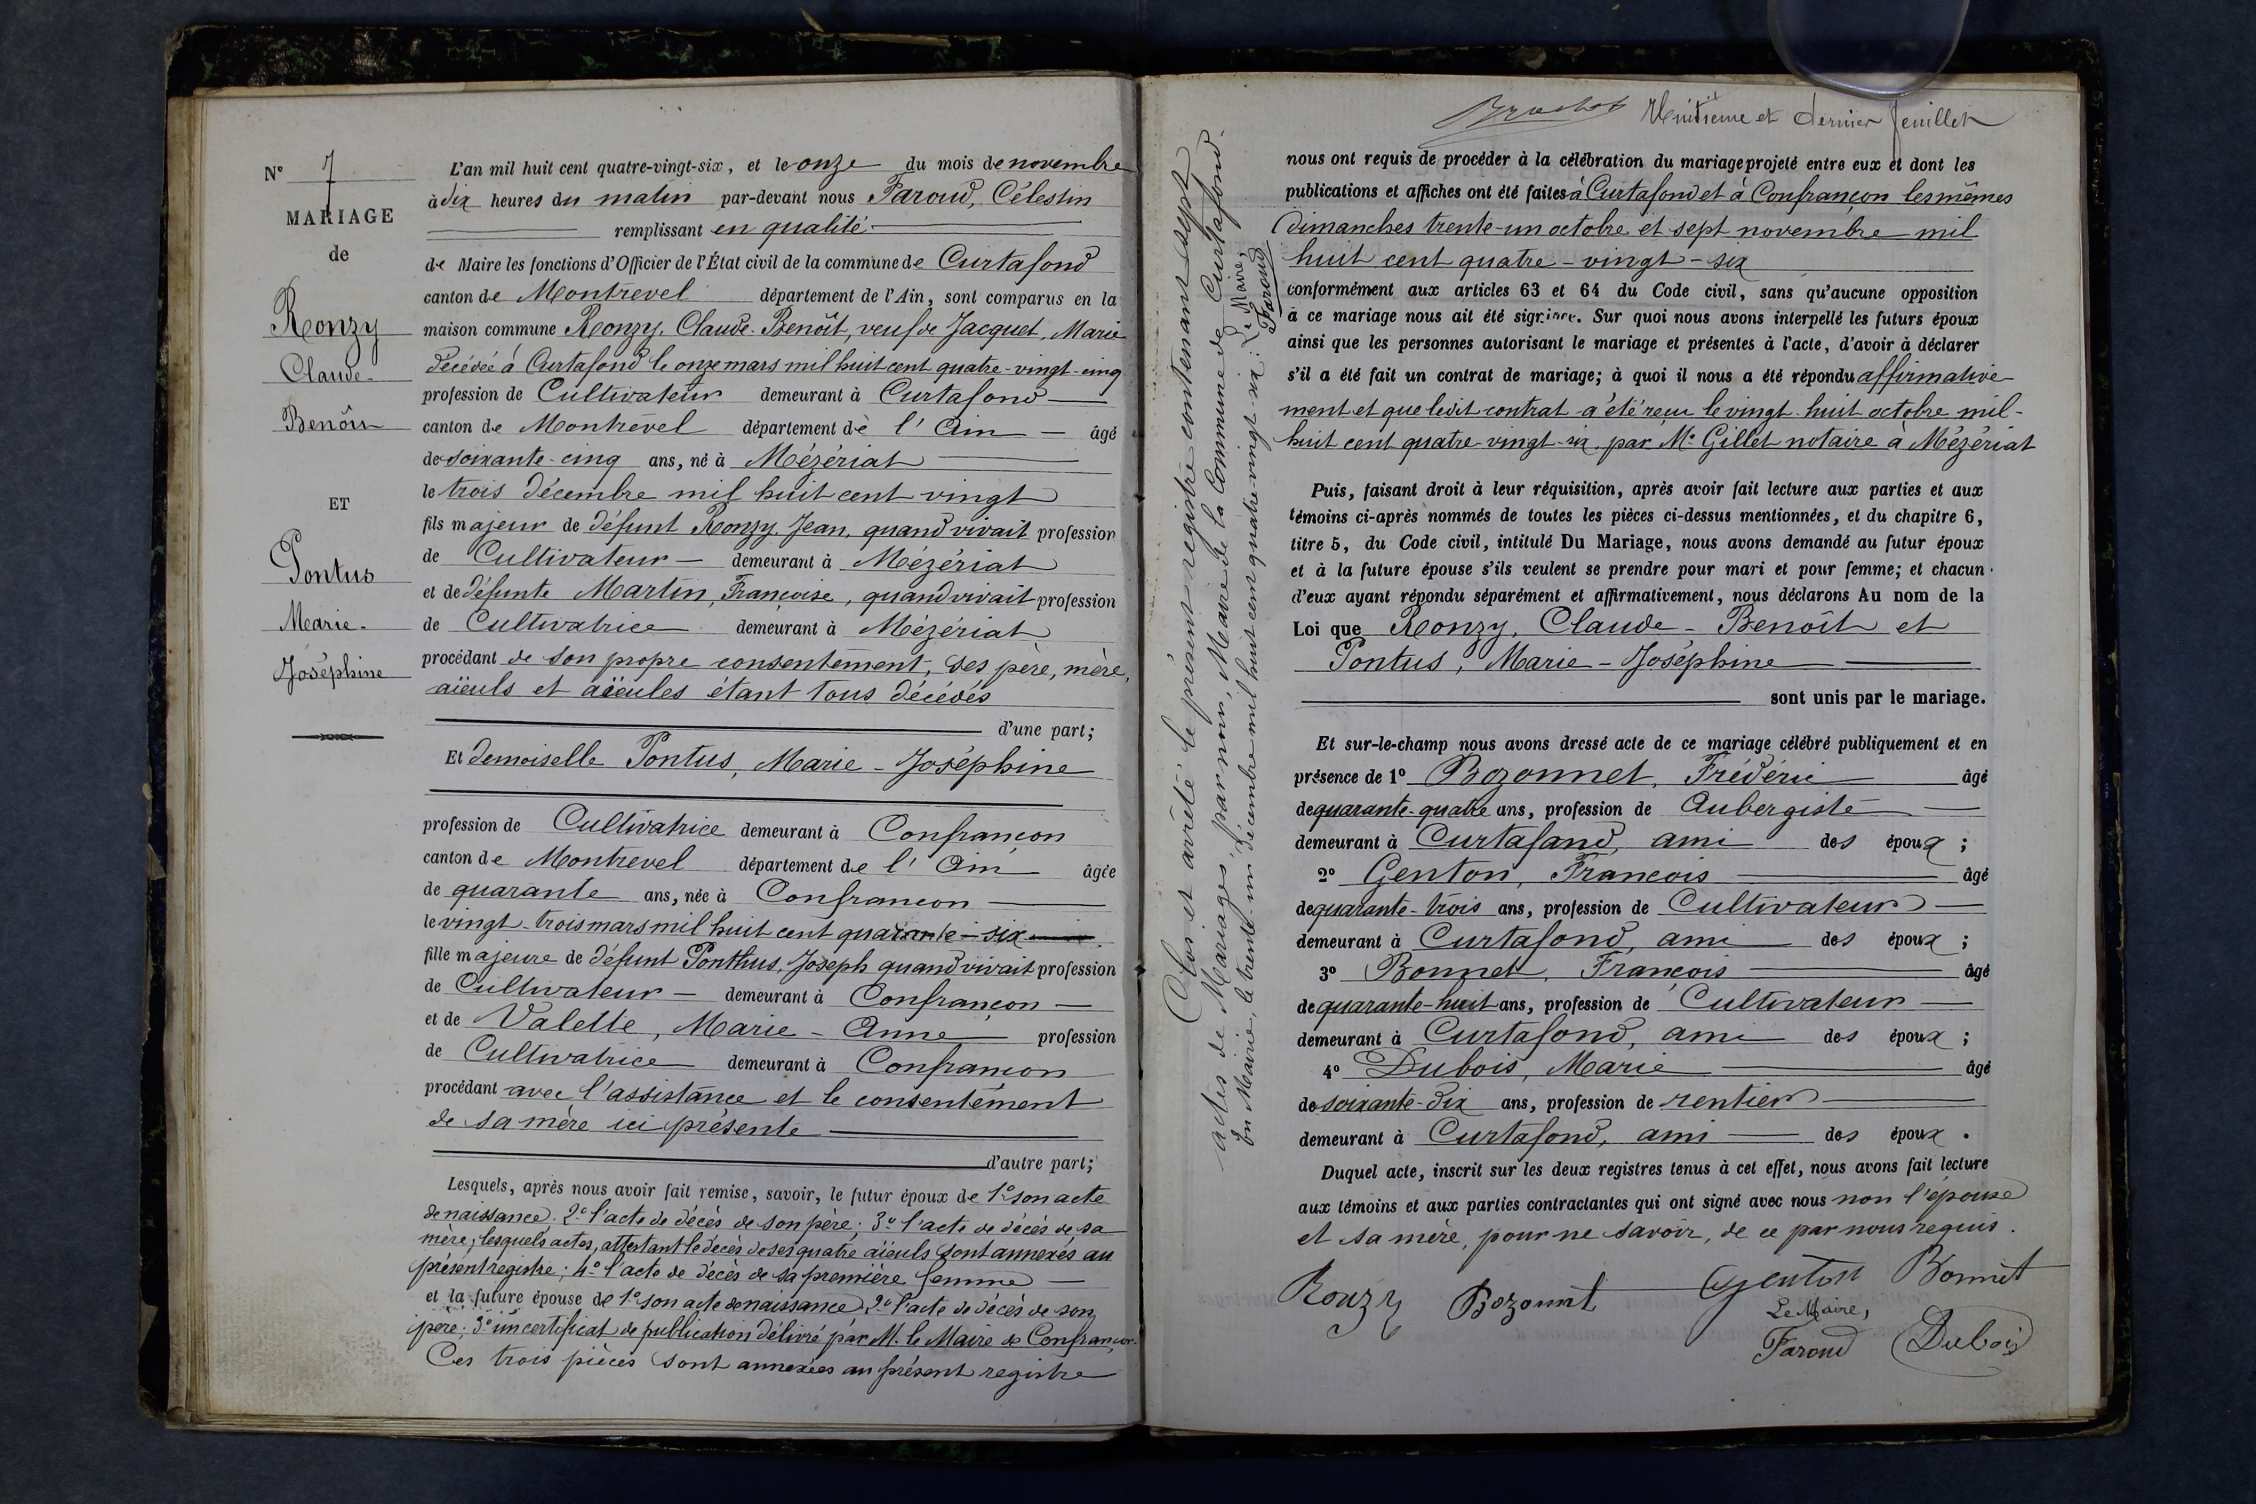 N° 7
MARIAGE
de
Ronzy
Claude-
Benoît
ET
Pontus
Marie-
Joséphine
L'an mil huit cent quatre-vingt-six, et le onze du mois de novembre
à dix heures du matin par-devant nous Faroud, Célestin
remplissant en qualité
de Maire les fonctions d'Officier de l'État civil de la commune de Curtafond
canton de Montrevel département de l'Ain, sont comparus en la
maison commune Ronzy, Claude-Benoît, veuf de Jacquet, Marie
décédée à Curtafond le onze mars mil huit cent quatre-vingt-cinq
profession de Cultivateur demeurant à Curtafond
canton de Montrevel département de l'Ain âgé
de soixante-cinq ans, né à Mézériat
le trois décembre mil huit cent vingt
fils majeur de défunt Ronzy, Jean, quand vivait profession
de Cultivateur demeurant à Mézériat
et de défunte Martin, Françoise, quand vivait profession
de Cultivatrice demeurant à Mézériat
procédant de son propre consentement, ses père, mère,
aïeuls et aïeules étant tous décédés
d'une part;
Et demoiselle Pontus, Marie-Joséphine
profession de Cultivatrice demeurant à Confrançon
canton de Montrevel département de l'Ain âgée
de quarante ans, née à Confrançon
le vingt-trois mars mil huit cent quarante-six
fille majeure de défunt Ponthus, Joseph quand vivait profession
de Cultivateur demeurant à Confrançon
et de Valette, Marie-Anne profession
de Cultivatrice demeurant à Confrançon
procédant avec l'assistance et le consentement
de sa mère ici présente
d'autre part;
Lesquels, après nous avoir fait remise, savoir, le futur époux de 1° son acte
de naissance; 2° l'acte de décès de son père; 3° l'acte de décès de sa
mère; lesquels actes, attestant le décès de ses quatre aïeuls sont annexés au
présent registre; 4° l'acte de décès de sa première femme
et la future épouse de 1° son acte de naissance; 2° l'acte de décès de son
père; 3° un certificat de publication délivré par M. le Maire de Confrançon.
Ces trois pièces sont annexées au présent registre
Clos et arrêté le présent registre contenant sept
actes de Mariages, par nous, Maire de la Commune de Curtafond.
En Mairie, le trente-un décembre mil huit cent quatre-vingt-six: Le Maire,
Faroud
Huitième et dernier feuillet
nous ont requis de procéder à la célébration du mariage projeté entre eux et dont les
publications et affiches ont été faites à Curtafond et à Confrançon les mêmes
dimanches trente-un octobre et sept novembre mil
huit cent quatre-vingt-six
conformément aux articles 63 et 64 du Code civil, sans qu'aucune opposition
à ce mariage nous ait été signifiée. Sur quoi nous avons interpellé les futurs époux
ainsi que les personnes autorisant le mariage et présentes à l'acte, d'avoir à déclarer
s'il a été fait un contrat de mariage; à quoi il nous a été répondu affirmative-
ment et que ledit contrat a été reçu le vingt-huit octobre mil-
huit cent quatre-vingt-six par Me Gillet notaire à Mézériat
Puis, faisant droit à leur réquisition, après avoir fait lecture aux parties et aux
témoins ci-après nommés de toutes les pièces ci-dessus mentionnées, et du chapitre 6,
titre 5, du Code civil, intitulé Du Mariage, nous avons demandé au futur époux
et à la future épouse s'ils veulent se prendre pour mari et pour femme; et chacun
d'eux ayant répondu séparément et affirmativement, nous déclarons Au nom de la
Loi que Ronzy, Claude-Benoît et
Pontus, Marie-Joséphine
sont unis par le mariage.
Et sur-le-champ nous avons dressé acte de ce mariage célébré publiquement et en
présence de 1° Bozonnet, Frédéric âgé
de quarante-quatre ans, profession de Aubergiste
demeurant à Curtafand, ami des époux;
2° Genton, François âgé
de quarante-trois ans, profession de Cultivateur
demeurant à Curtafond, ami des époux;
3° Bonnet, François âgé
de quarante-huit ans, profession de Cultivateur
demeurant à Curtafond, ami des époux;
4° Dubois, Marie âgé
de soixante-dix ans, profession de rentier
demeurant à Curtafond, ami des époux.
Duquel acte, inscrit sur les deux registres tenus à cet effet, nous avons fait lecture
aux témoins et aux parties contractantes qui ont signé avec nous non l'épouse
et sa mère, pour ne savoir, de ce par nous requis.
Ronzy Bozonnet Genton Bonnet
Le Maire,
Faroud Dubois